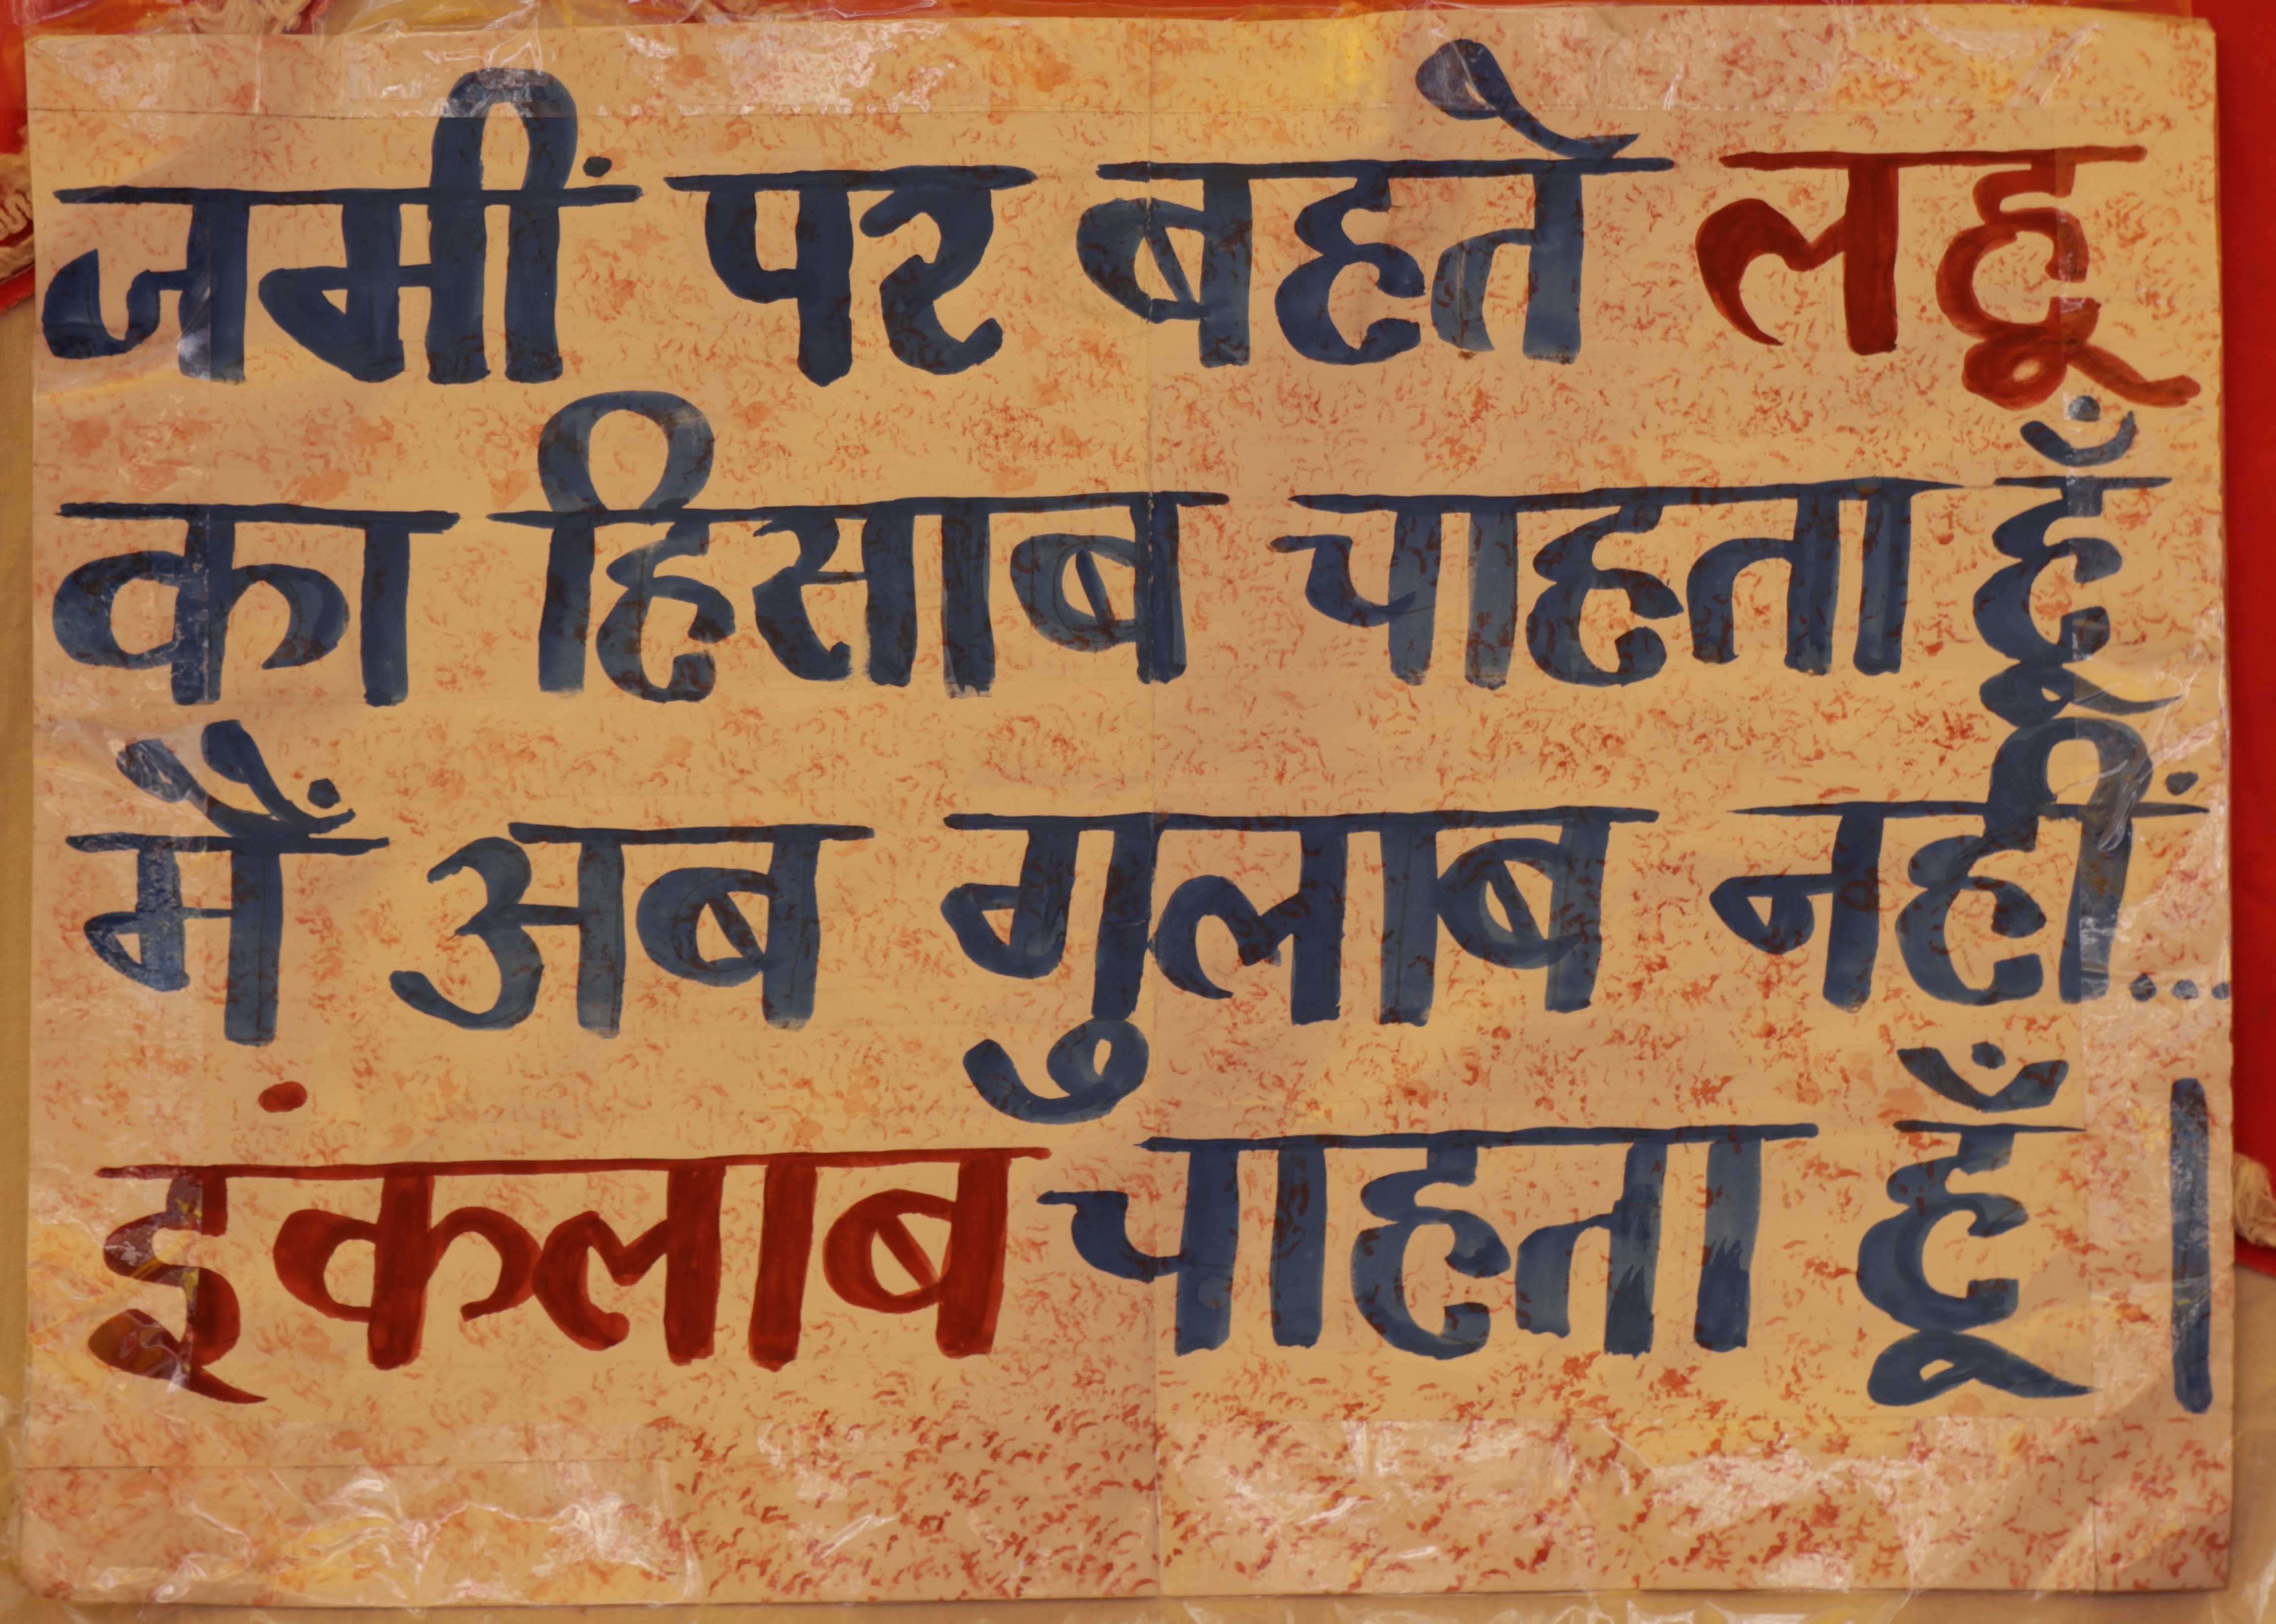 जमीं पर बहते लहू
का हिसाब चाहता हूँ
मैं अब गुलाब नहीं...
इंकलाब चाहता हूँ।